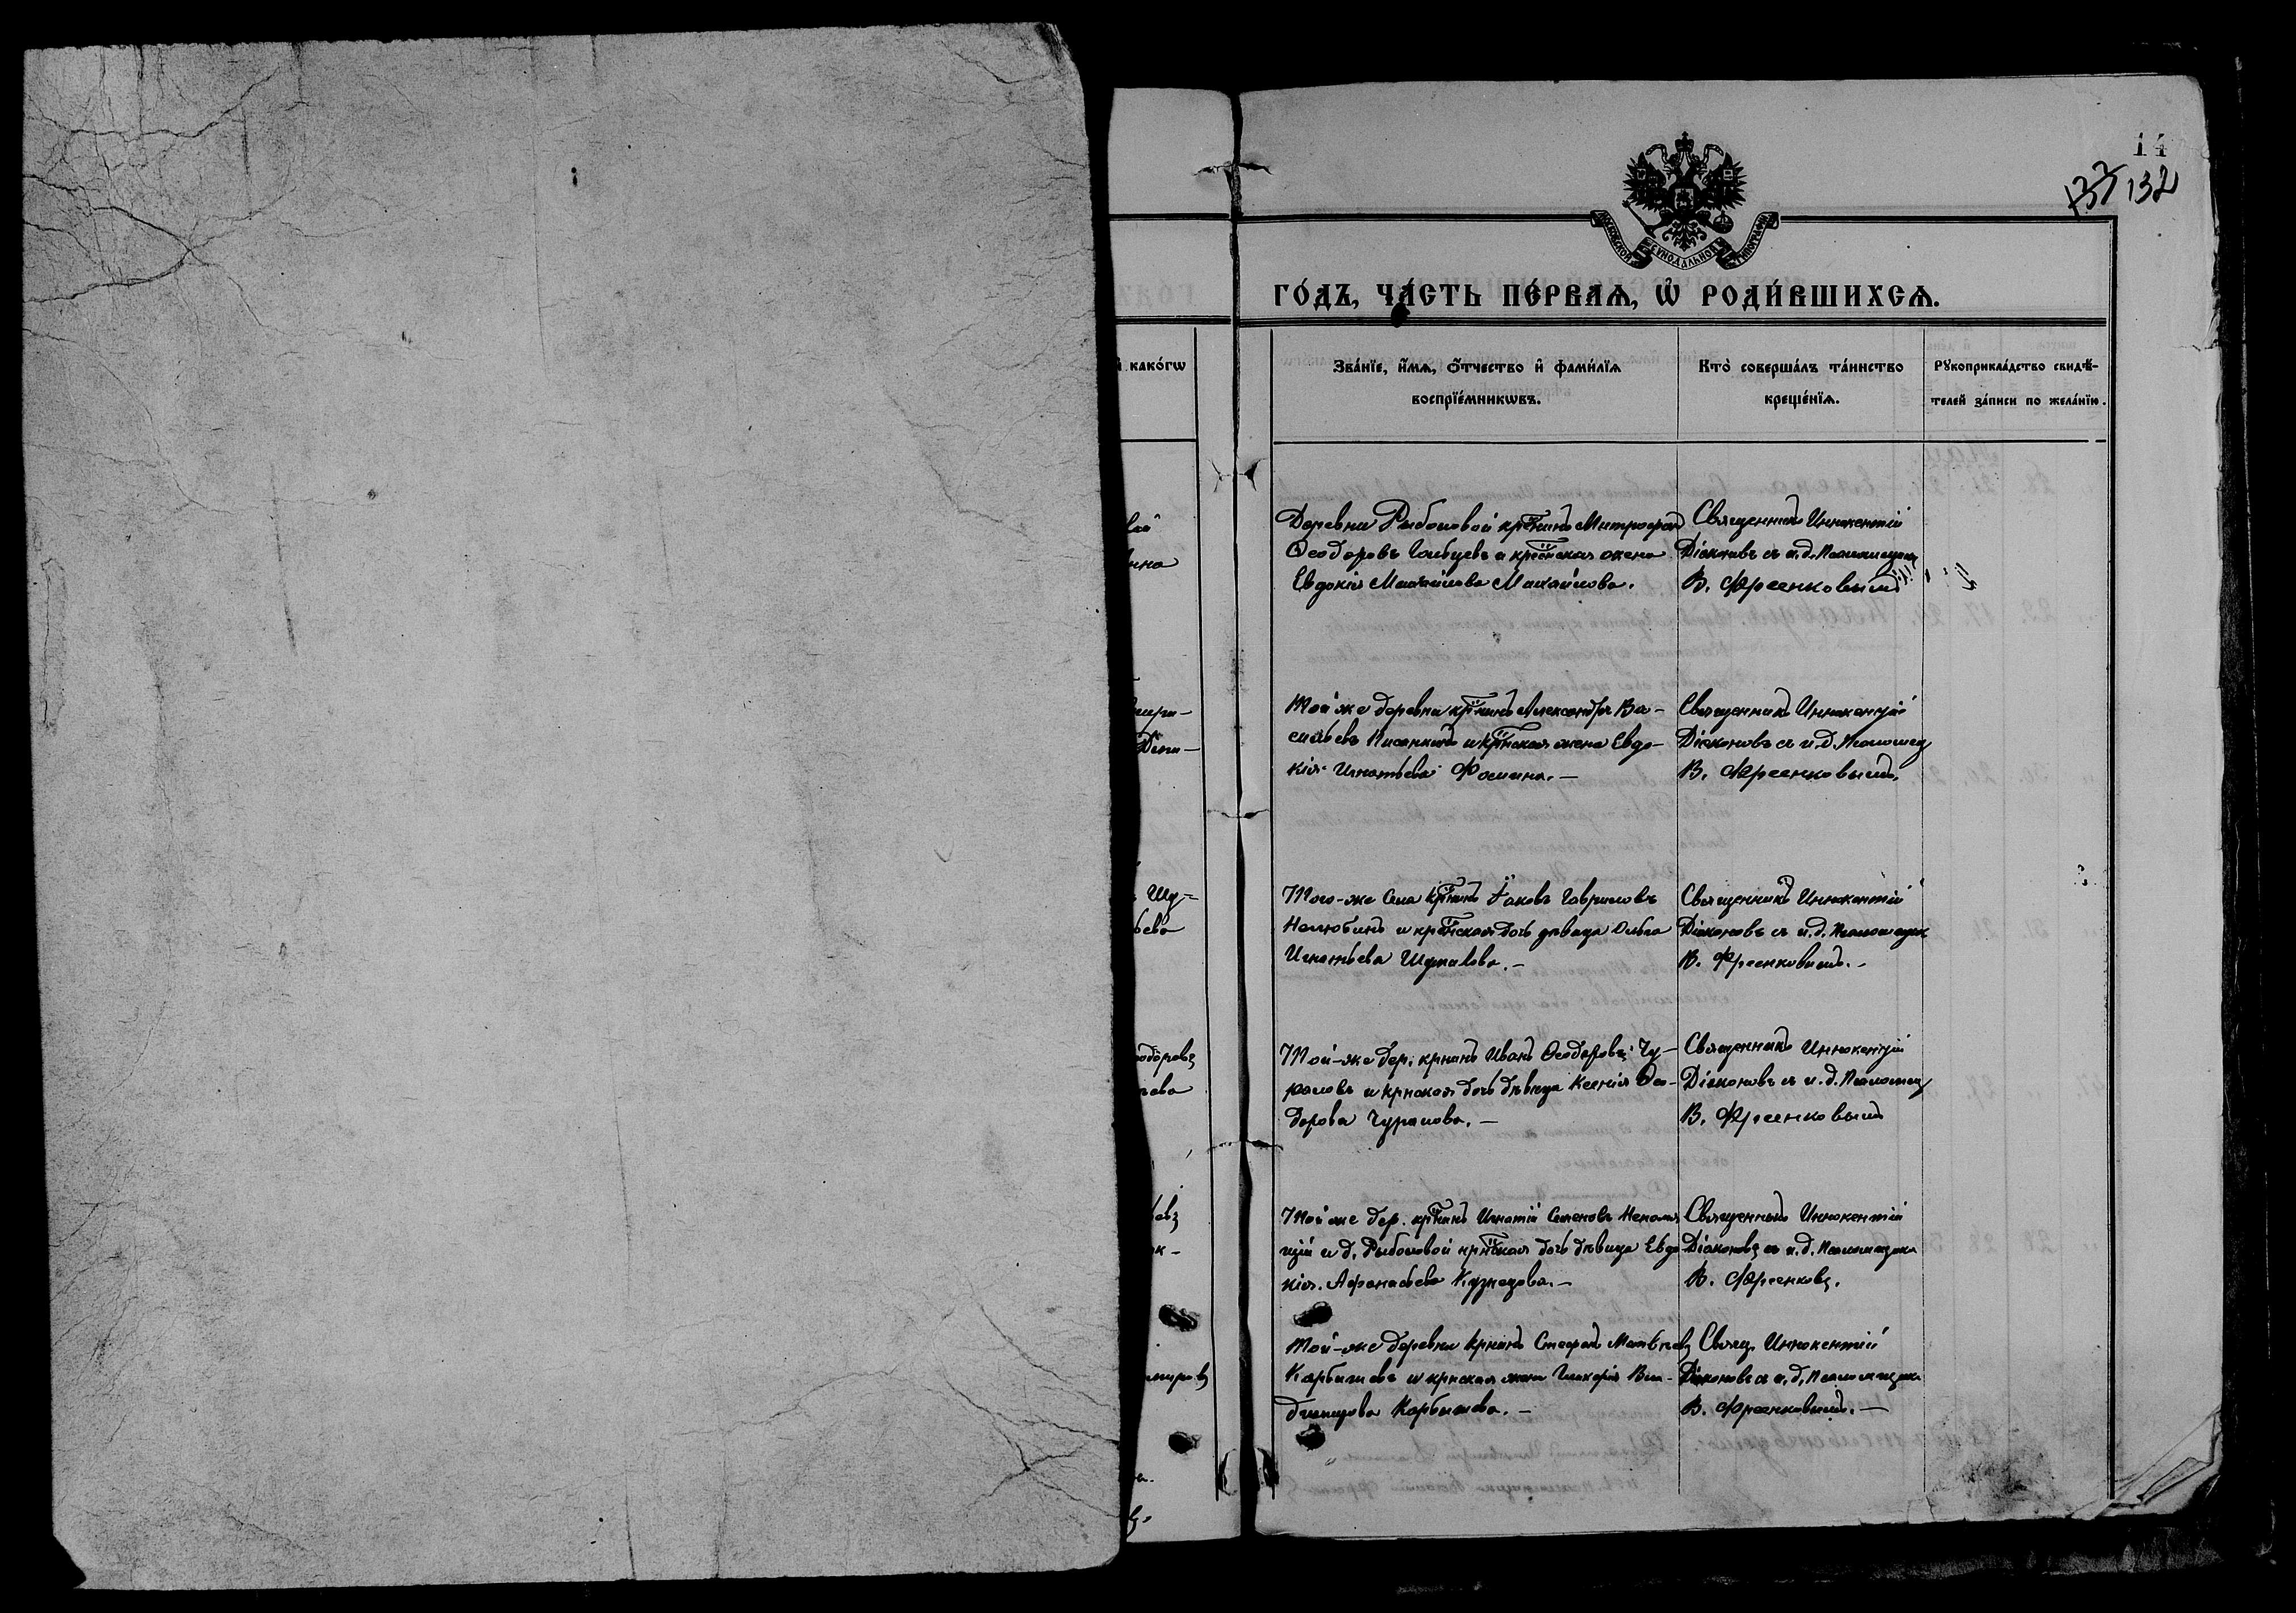 14
132
МОСКОВСКОЙ СѴНОДАЛЬНОЙ ТИПОГРАФІИ
ГО́ДЪ, ЧА́СТЬ ПЕ́РВАѦ, Ѡ҆ РОДИ́ВШИХСѦ.
како́гѡ
Зва́нїе, и҆́мѧ, о҆́тчество и҆ фами́лїѧ
воспрїе́мникѡвъ.
Кто̀ соверша́лъ та́инство
креще́нїѧ.
Рꙋкоприкла́дство свидѣ-
телей за́писи по жела́нїю.
Деревни Рыбаловой кр-нинъ Митрофанъ
Ѳеодоровъ и кр-нская жена
Евдокія Михайлова Михайлова.
Священникъ Иннокентій
Діаконовъ съ и.д. Псаломщика
В. Фреенковымъ
Той же деревни кр-нинъ Александръ Ва-
сильевъ и кр-нская жена Евдо-
кія Игнатьева Фомина. —
Священникъ Иннокентій
Діаконовъ съ и.д. Псаломщ
В. Фреенковымъ.
Шу-
ьева
Того-же Села кр-нинъ Іаковъ Гавриловъ
Нелюбинъ и кр-нская дочь дѣвица Ольга
Игнатьева Шумилова. —
Священникъ Иннокентій
Діаконовъ съ и.д. Псаломщик
В. Фреенковымъ. —
Той-же дер. кр-нинъ Иванъ Ѳеодоровъ Чу-
раловъ и кр-нская дочь дѣвица Ксенія Ѳео-
дорова Чуралова. —
Священникъ Иннокентій
Діаконовъ съ и.д. Псаломщ
В. Фреенковымъ
Той же дер. кр-нинъ Игнатій Семеновъ
и д. Рыбаловой кр-нская дочь дѣвица Евдо
кія Афонасьева Кузнецова. —
Священникъ Иннокентій
Діаконовъ съ и.д. Псаломщика
В. Фреенковъ.
Той-же деревни кр-нинъ Стефанъ Матвѣевъ
Карбышевъ и кр-нская жена Гликерія Вла-
димирова Карбышева. —
Свящ. Иннокентій
Діаконовъ съ и.д. Псаломщика
В. Фреенковымъ. —